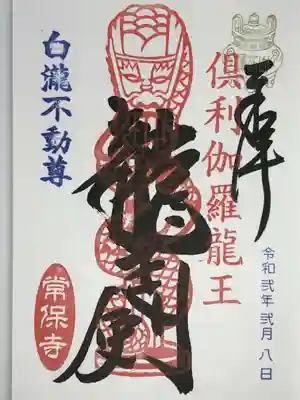 奉拝
令和弐年弐月八日
倶利伽羅龍王
龍王剣
白瀧不動尊
常保寺